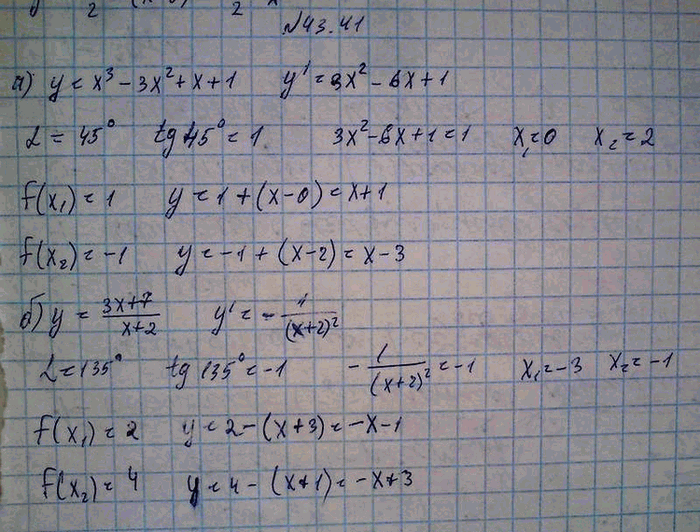 №43.41
а) y = x³ - 3x² + x + 1 y' = 3x² - 6x + 1
α = 45° tg 45° = 1 3x² - 6x + 1 = 1 x₁ = 0 x₂ = 2
f(x₁) = 1 y = 1 + (x - 0) = x + 1
f(x₂) = -1 y = -1 + (x - 2) = x - 3
б) y = (3x+7)/(x+2) y' = - 1/(x+2)²
α = 135° tg 135° = -1 - 1/(x+2)² = -1 x₁ = -3 x₂ = -1
f(x₁) = 2 y = 2 - (x + 3) = -x - 1
f(x₂) = 4 y = 4 - (x + 1) = -x + 3